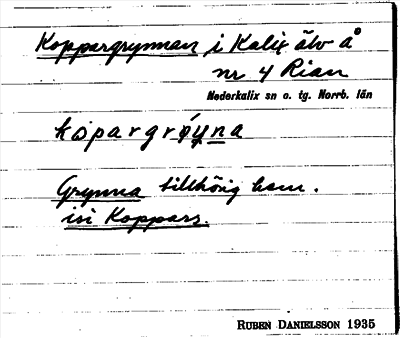 Koppargrynnan i Kalix älv å
nr 4 Rian
Nederkalix sn o. tg. Norrb. län
kopargrøyna
Grynna tillhörig hem.
isi Koppars.
RUBEN DANIELSSON 1935